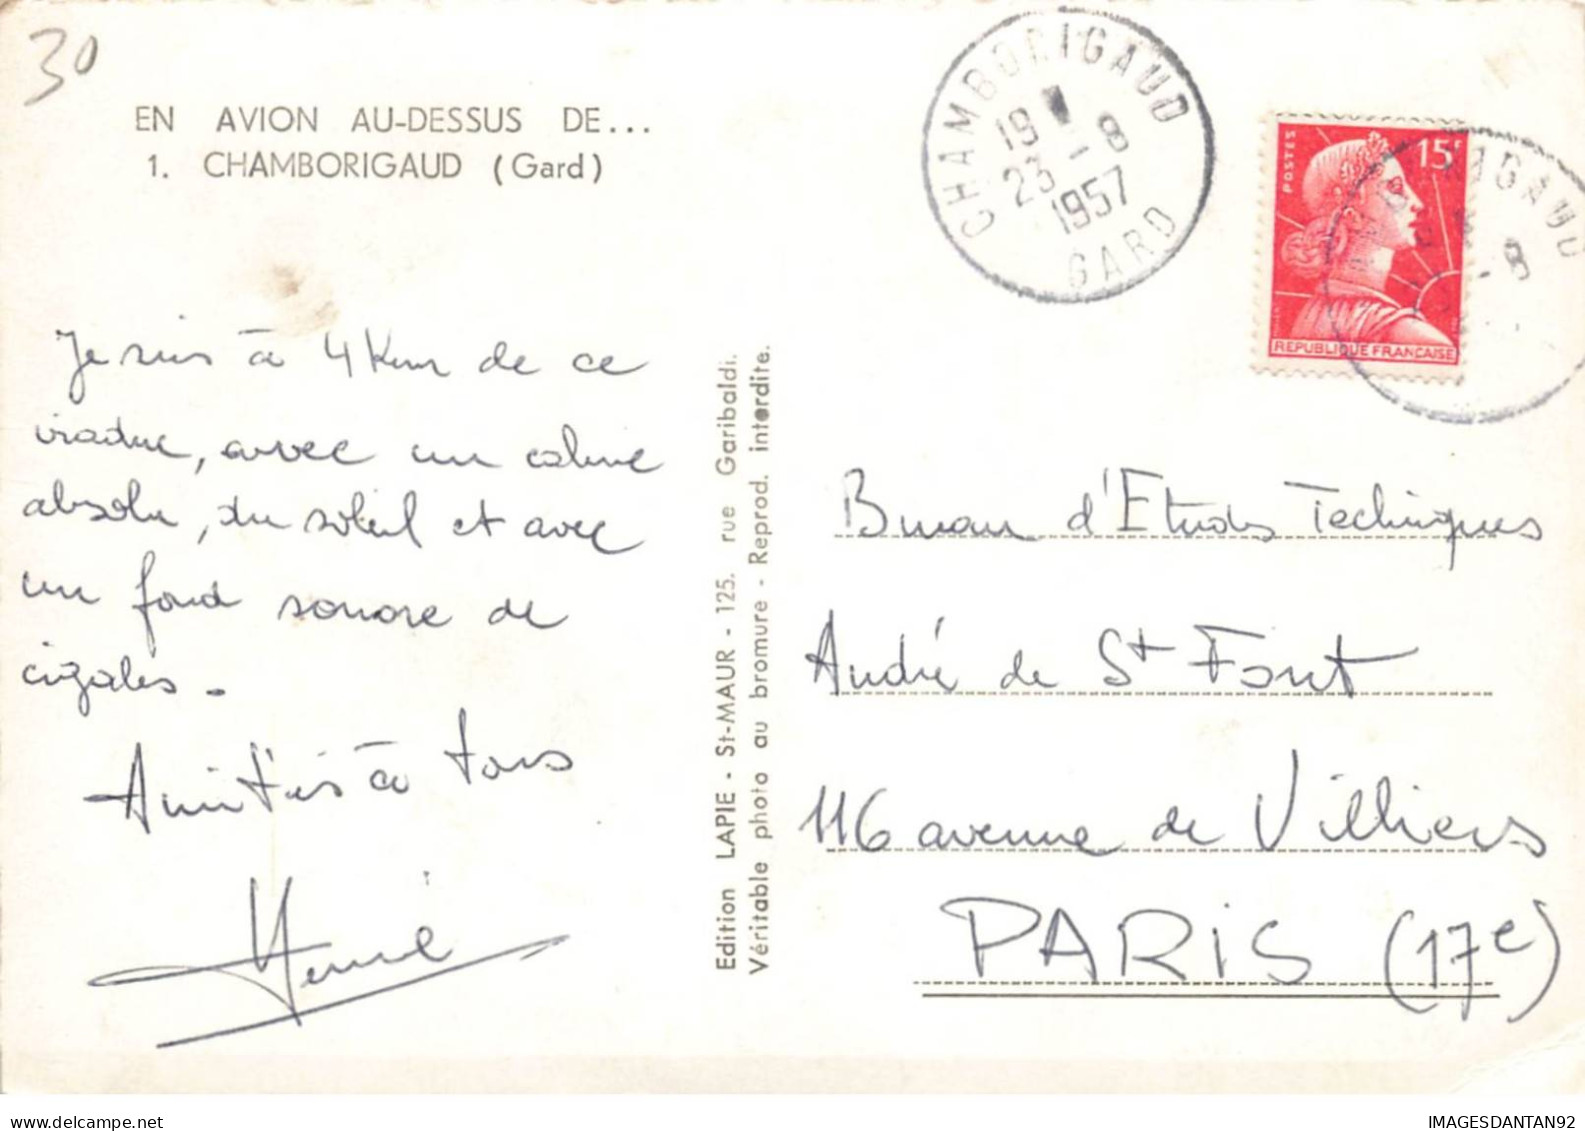 30
EN AVION AU-DESSUS DE...
1. CHAMBORIGAUD (Gard)
Je suis à 4 Km de ce
viaduc, avec un calme
absolu, du soleil et avec
un fond sonore de
cigales.
Amitiés à tous
Hervé
Edition LAPIE - St-MAUR - 125. rue Garibaldi.
Véritable photo au bromure - Reprod. interdite.
CHAMBORIGAUD
19
23 - 8
1957
GARD
POSTES
15F
REPUBLIQUE FRANCAISE
IGAUD
- 8
Bureau d'Etudes Techniques
André de St Font
116 avenue de Villiers
PARIS (17e)
IMAGESDANTAN92